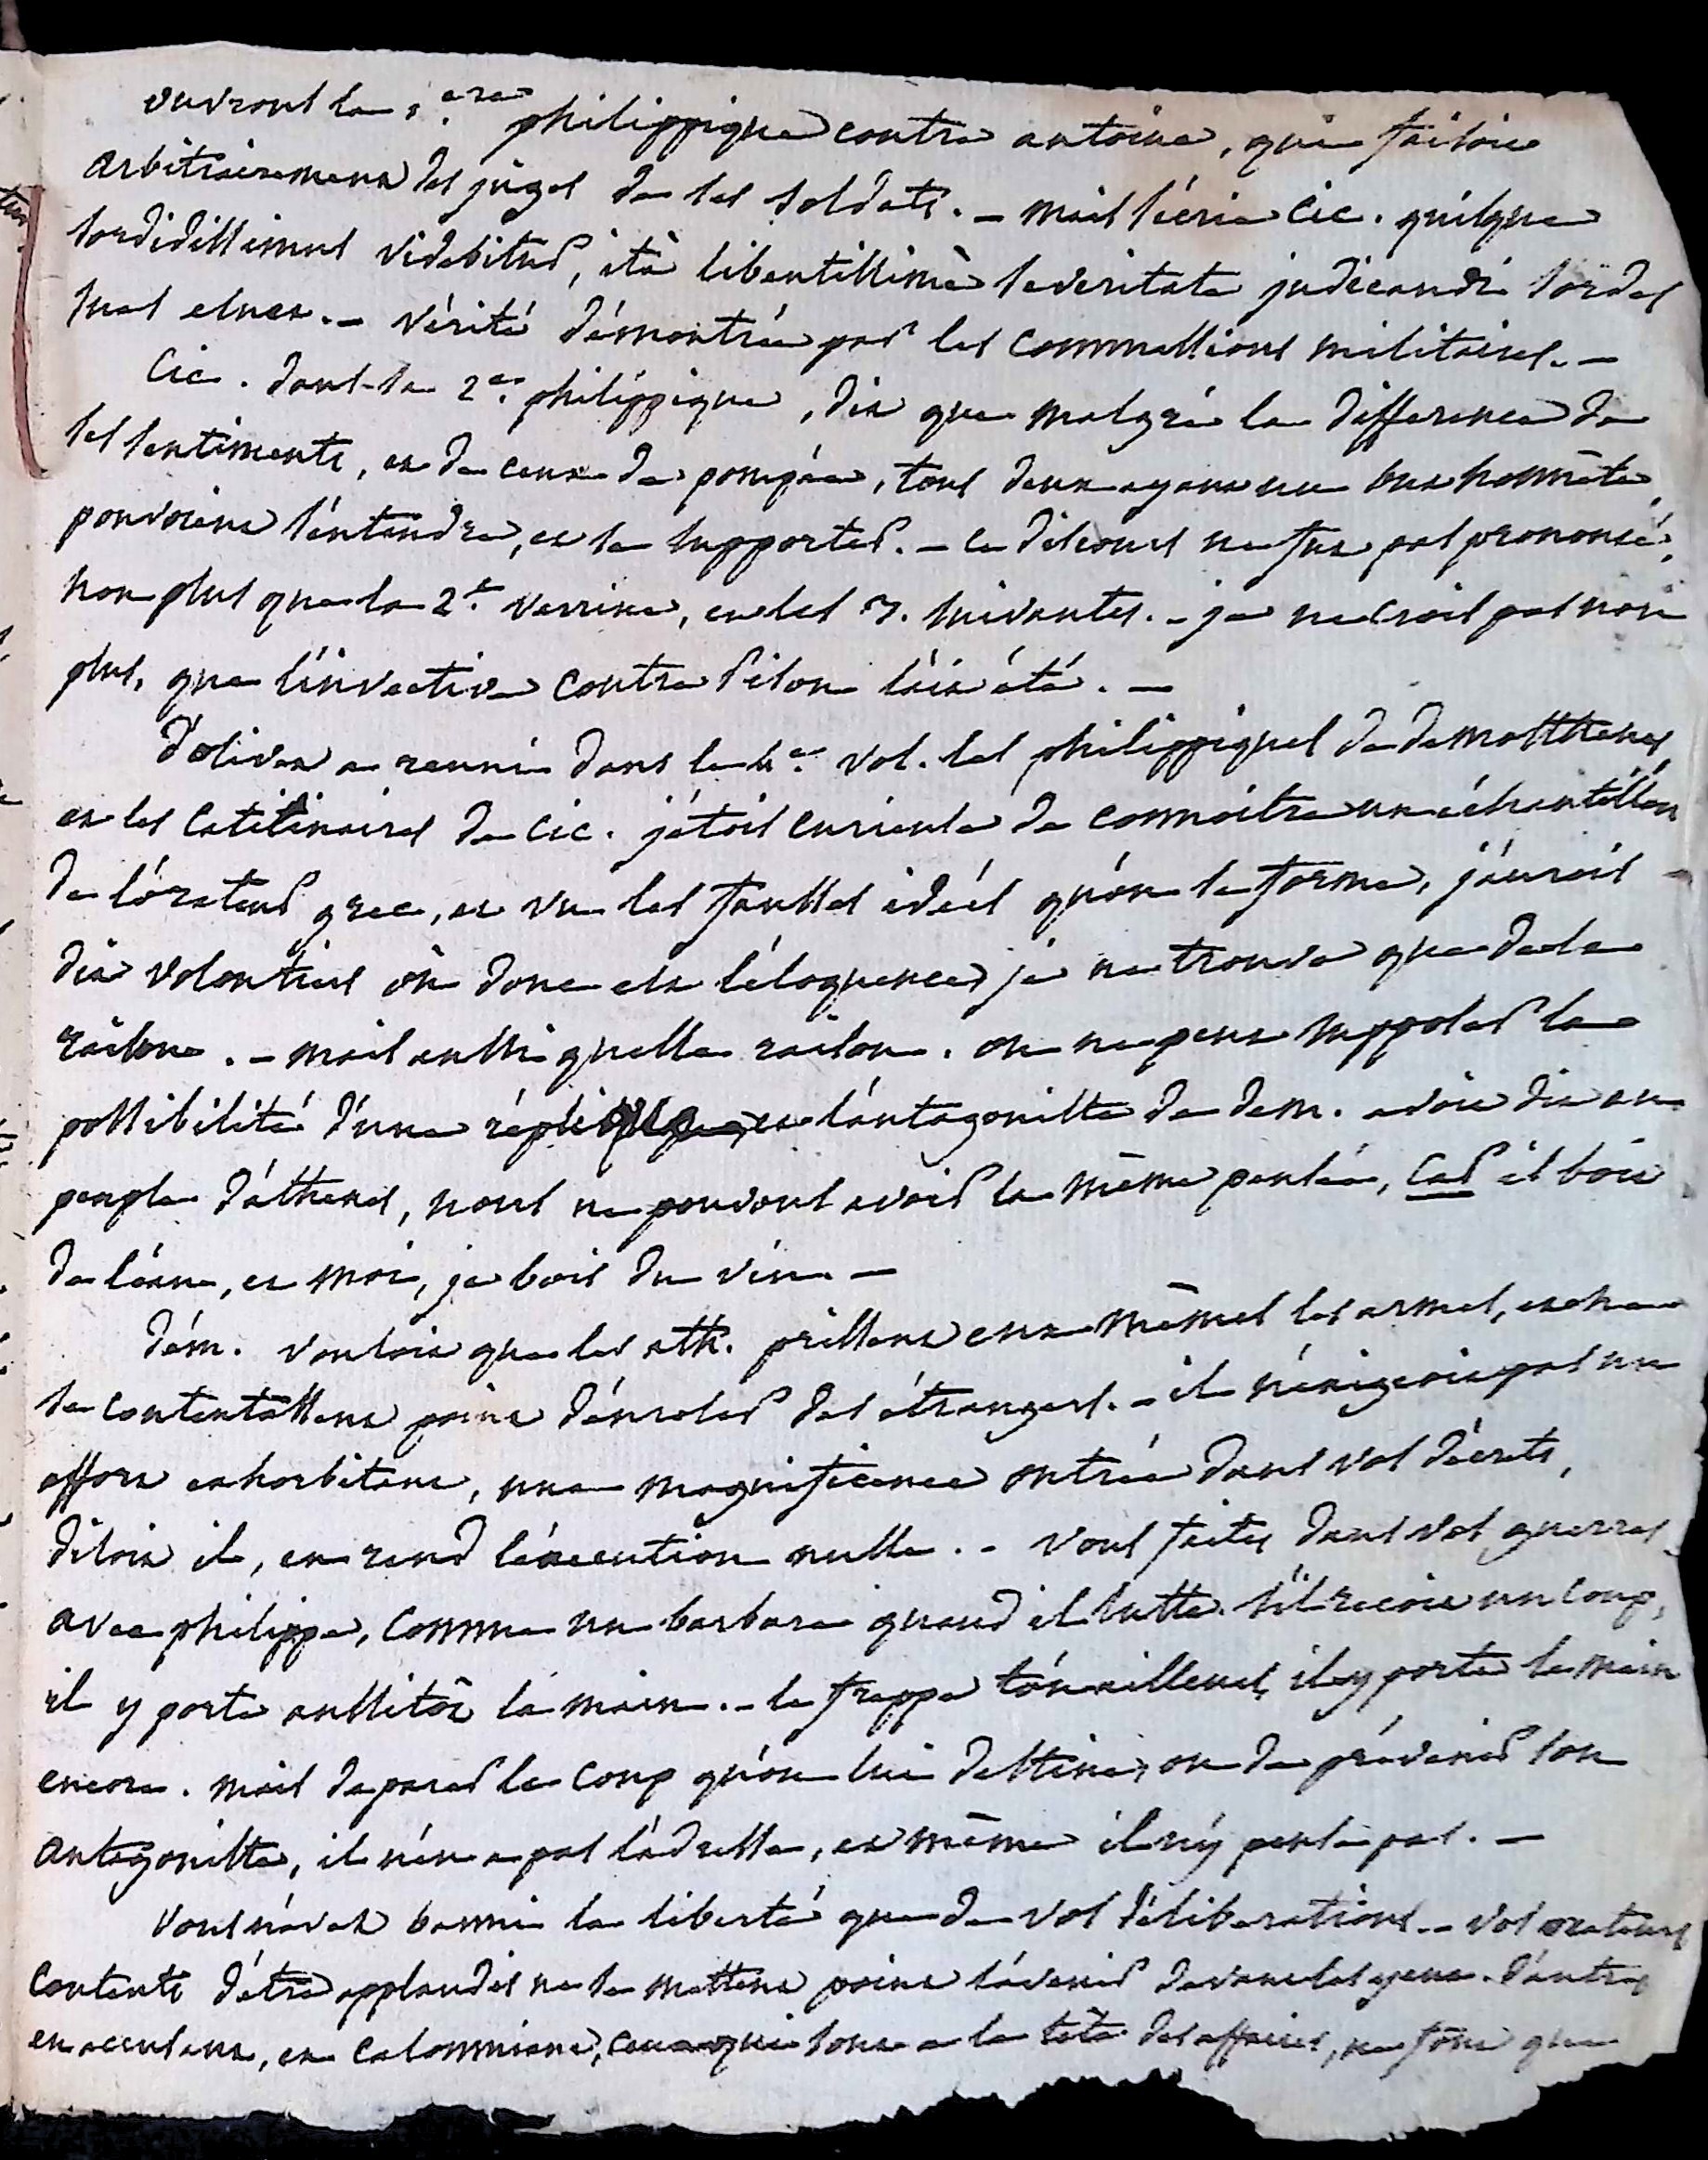 ouvrons la 1.ere philippique contre antoine, qui faisoit
arbitrairement des juges de ses soldats. – mais s'écrie Cic. quisque
sordidissimus videbitur, ità libentissimè severitate judicandi sordes
suas eluet. – vérité démontrée par les commissions militaires. –
Cic. dans la 2.e philippique, dit que malgré la difference de
ses sentiments, et de ceux de pompée, tous deux ayant un but honnête,
pouvoient s'entendre, et se supporter. – ce discours ne fut pas prononcé,
non plus que la 2.e verrine, et les 3. suivantes. – je ne crois pas non
plus, que l'invective contre Pison l'ait été. –
D'olivet a reuni dans le 4.e vol. les philippiques de demosthenes,
et les catilinaires de Cic. j'étois curieuse de connoitre un échantillon
de l'orateur grec, et vu les fausses idées qu'on se forme, j'aurois
dit volontiers où donc est l'éloquence, je ne trouve que de la
raison. – mais aussi quelle raison. on ne peut supposer la
possibilité d'une réplique, et l'antagoniste de dem. avoit dit au
peuple d'athenes, nous ne pouvons avoir la même pensée, car il boit
de l'eau, et moi, je bois du vin. –
Dém. vouloit que les ath. prissent eux mêmes les armes, et ne
se contentassent point d'enroler des étrangers. – il n'exigeoit pas un
effort exhorbitant, une magnificence outrée dans vos décrets,
disoit il, en rend l'éxecution nulle. – vous faites dans vos guerres
avec philippe, comme un barbare quand il lutte. s'il recoit un coup,
il y porte aussitôt la main. – le frappe t'on ailleurs, il y porte la main
encore. mais de parer le coup qu'on lui destine, ou de prévenir son
antagoniste, il n'en a pas l'adresse, et même il n'y pense pas. –
vous n'avez banni la liberté que de vos déliberations. – vos orateurs
contents d'être applaudis ne se mettent point l'avenir devant les yeux. d'autres
en accusant, en calomniant, ceux qui sont a la tête des affaires, ne font que